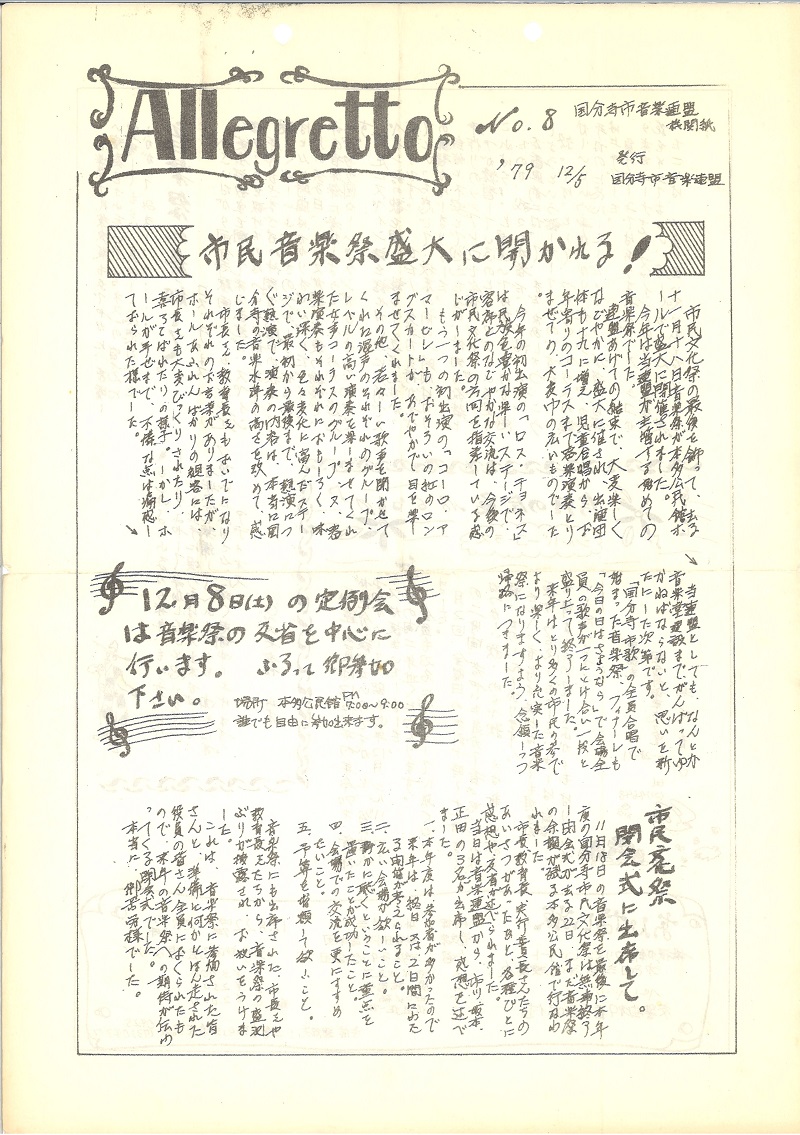 Allegretto
No. 8
'79 12/5
国分寺市音楽連盟
機関紙
発行
国分寺市音楽連盟
市民音楽祭盛大に開かれる!
市民文化祭の最後を飾って、去る
十一月十八日音楽祭が本多公民館ホ
ールで盛大に開催されました。
今年は当連盟が主催する初めての
音楽祭でした。
連盟あげての結束で、大変楽しく
なごやかに、盛大に催され、出演団
体も十九に増え、児童合唱から、お
年寄りのコーラスまで器楽演奏とり
まぜての、大変巾の広いものでした
。
今年の初出演の「ロス・チョネス」
は民族色豊かな楽しいステージで、
客席とのなごやかな交流は、今後の
市民文化祭の方向を指差している感
じがしました。
もう一つの初出演の「コーロ・ア
マービレ」も、おそろいの紅のロン
グスカートが、あでやかで目を楽し
ませてくれました。
その他、若々しい歌声を聞かせて
くれた混声のそれぞれのグループ、
レベルの高い演奏を楽しませてくれ
た女声コーラスのグループ、又、器
楽演奏もそれぞれにおもしろく、味
わい深く、色々変化に富んだステー
ジで、最初から最後まで、熱演につ
ぐ熱演で、演奏の内容は、本当に国
分寺の音楽水準の高さを改めて、感
じました。
市長さん、教育長さんもおいでになり
それぞれのお言葉がありましたが、
ホールあふれんばかりの観客には、
市長さんも大変びっくりされたり、
喜んでばれたりの様子。しかし、ホ
ールが手ぜまで、不備な点は痛感し
ておられた様でした。
当連盟としても、なんとか
音楽堂建設までがんばってゆ
かねばならないと、思いを新
たにした次第です。
「国分寺市歌」の全員合唱で
始まった音楽祭、フィナーレも
「今日の日はさようなら」で会場全
員の歌声が一つにとけ合い一段と
盛り上って、終了しました。
来年はより多くの市民の参で
より楽しく、より充実した音楽
祭になりますよう、念願しつつ
帰路につきました。
12月8日(土)の定例会
は音楽祭の反省を中心に
行います。ふるって御参加
下さい。
場所 本多公民館 PM 7:00~9:00
誰でも自由に参加出来ます。
市民文化祭
閉会式に出席して。
11月18日の音楽祭を最後に本年
度の国分寺市民文化祭は無事終了
し閉会式が去る22日、まだ音楽祭
の余韻が残る本多公民館で行なわ
れました。
市長、教育長、実行委員長さんたちの
あいさつがあったあと、各種びとに
感想や反省が述べられました。
当日は音楽連盟から、市川、坂本、
正田の3名が出席し、感想を述べ
ました。
一、本年度は参加者が多かったので
来年は、終日又は2日間にわた
る開催が考えられること。
二、広い会場が欲しいこと。
三、静かに聴くということに重点を
置いたことが成功したこと。
四、会場での交流を更にすすめ
たいこと。
五、予算を増額して欲しいこと。
音楽祭にも出席された、市長さんや
教育長さんたちから、音楽祭の盛況
ぶりが披露され、お祝いをうけま
した。
これは、音楽祭に参加された皆
さんと、準備に何かとほん走された
役員の皆さん全員におくられたも
ので、来年の音楽祭への期待が伝わ
ってくる閉会式でした。
本当に、御苦労様でした。